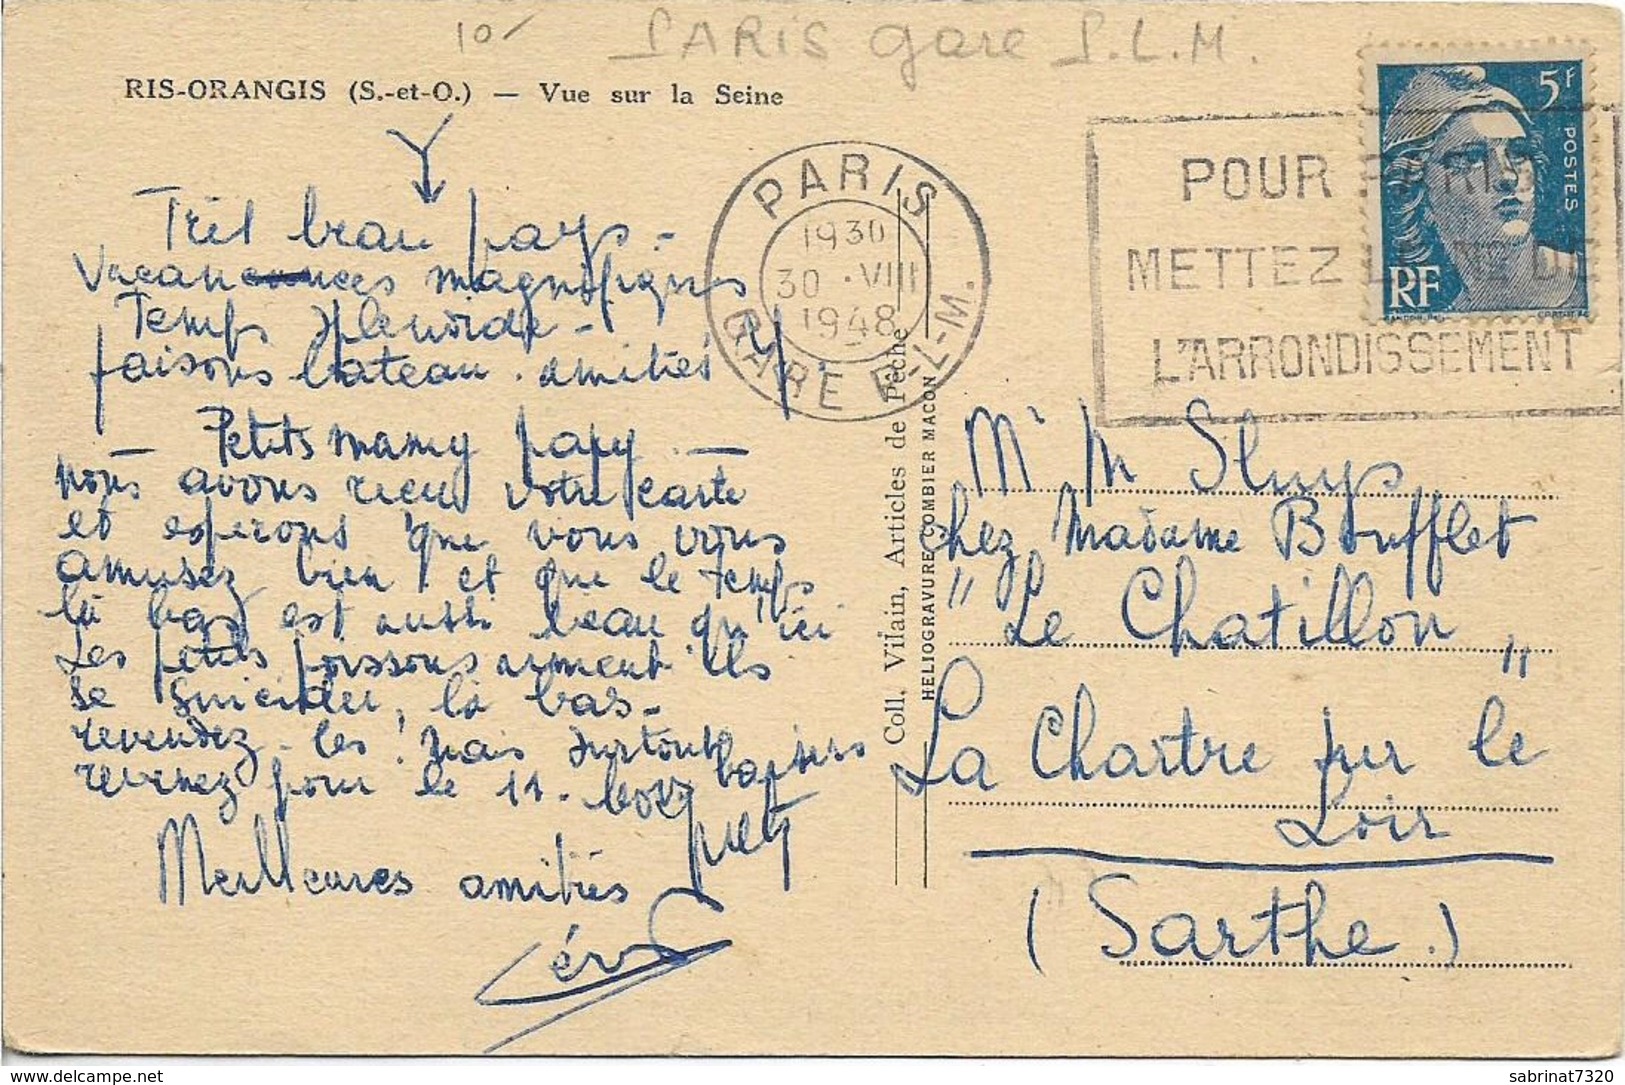 10-
PARIS gare P.L.M.
RIS-ORANGIS (S.-et-O.) — Vue sur la Seine
PARIS
1930
30 · VIII
1948
GARE P.-L.-M.
POUR PARIS
METTEZ LE N° DE
L'ARRONDISSEMENT
5f
POSTES
RF
Coll. Vilain, Articles de Pêche
HELIOGRAVURE COMBIER MACON
Très beau pays -
Vacances magnifiques
Temps splendide -
faisons bateau. amitiés
- Petits mamy papy -
nous avons reçu votre carte
et espérons que vous vous
amusez bien et que le temps
là bas est aussi beau qu'ici
Les petits poissons aiment ils
se suicider, là bas -
revendez-les! Mais surtout
revenez pour le 11. bons baisers
Meilleures amitiés
Mr M Sluys
chez Madame Boufflet
"Le Chatillon"
La Chartre sur le
Loir
(Sarthe.)
sabrinat7320